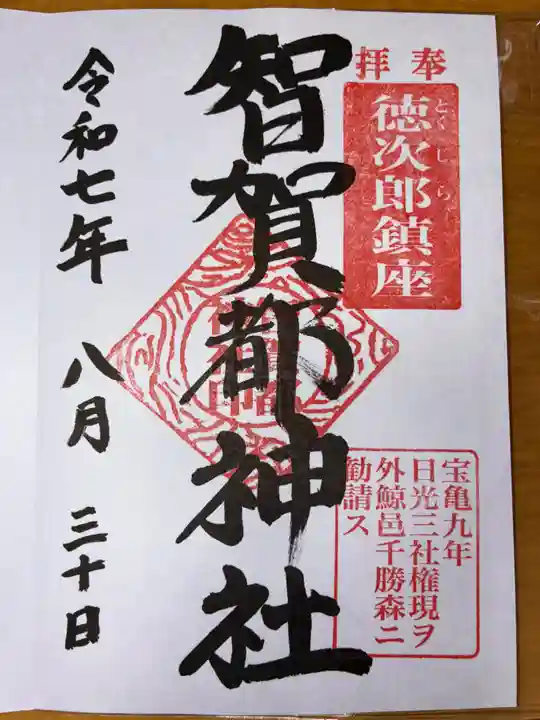 奉拝
徳次郎鎮座
とくじら
智賀都神社
宝亀九年
日光三社権現ヲ
外鯨邑千勝森ニ
勧請ス
令和七年 八月 三十日